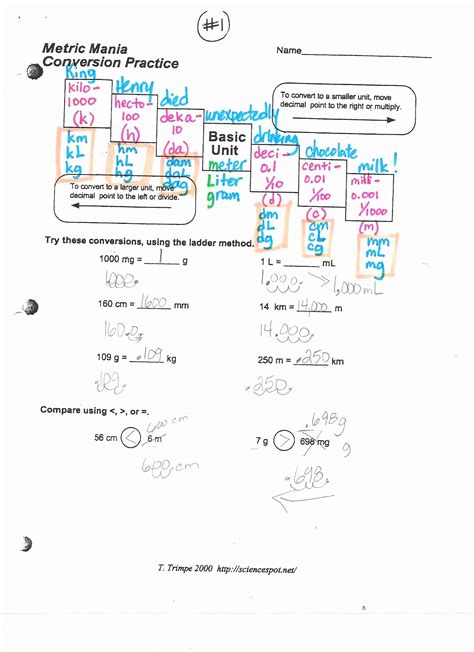 #1
Metric Mania
Conversion Practice
Name
King Henny died unexpectedly drinking chocolate milk!
kilo-
1000
(k)
km
kL
kg
hecto
100
(h)
hm
hL
hg
deka-
10
(da)
dam
daL
dag
Basic
Unit
meter
Liter
gram
deci-
0.1
1/10
(d)
dm
dL
dg
centi-
0.01
1/100
(c)
cm
cL
cg
milli-
0.001
1/1000
(m)
mm
mL
mg
To convert to a smaller unit, move
decimal point to the right or multiply.
To convert to a larger unit, move
decimal point to the left or divide.
Try these conversions, using the ladder method.
1000 mg = 1 g
1 L = mL
1000.
1,000. > 1,000 mL
160 cm = 1600 mm
14 km = 14,000 m
160.0
14.000
109 g = .109 kg
250 m = .250 km
109.
.250.
Compare using <, >, or =.
600 cm
.698g
56 cm < 6 m
7 g > 698 mg
g
600.cm
.698.
T. Trimpe 2000 http://sciencespot.net/